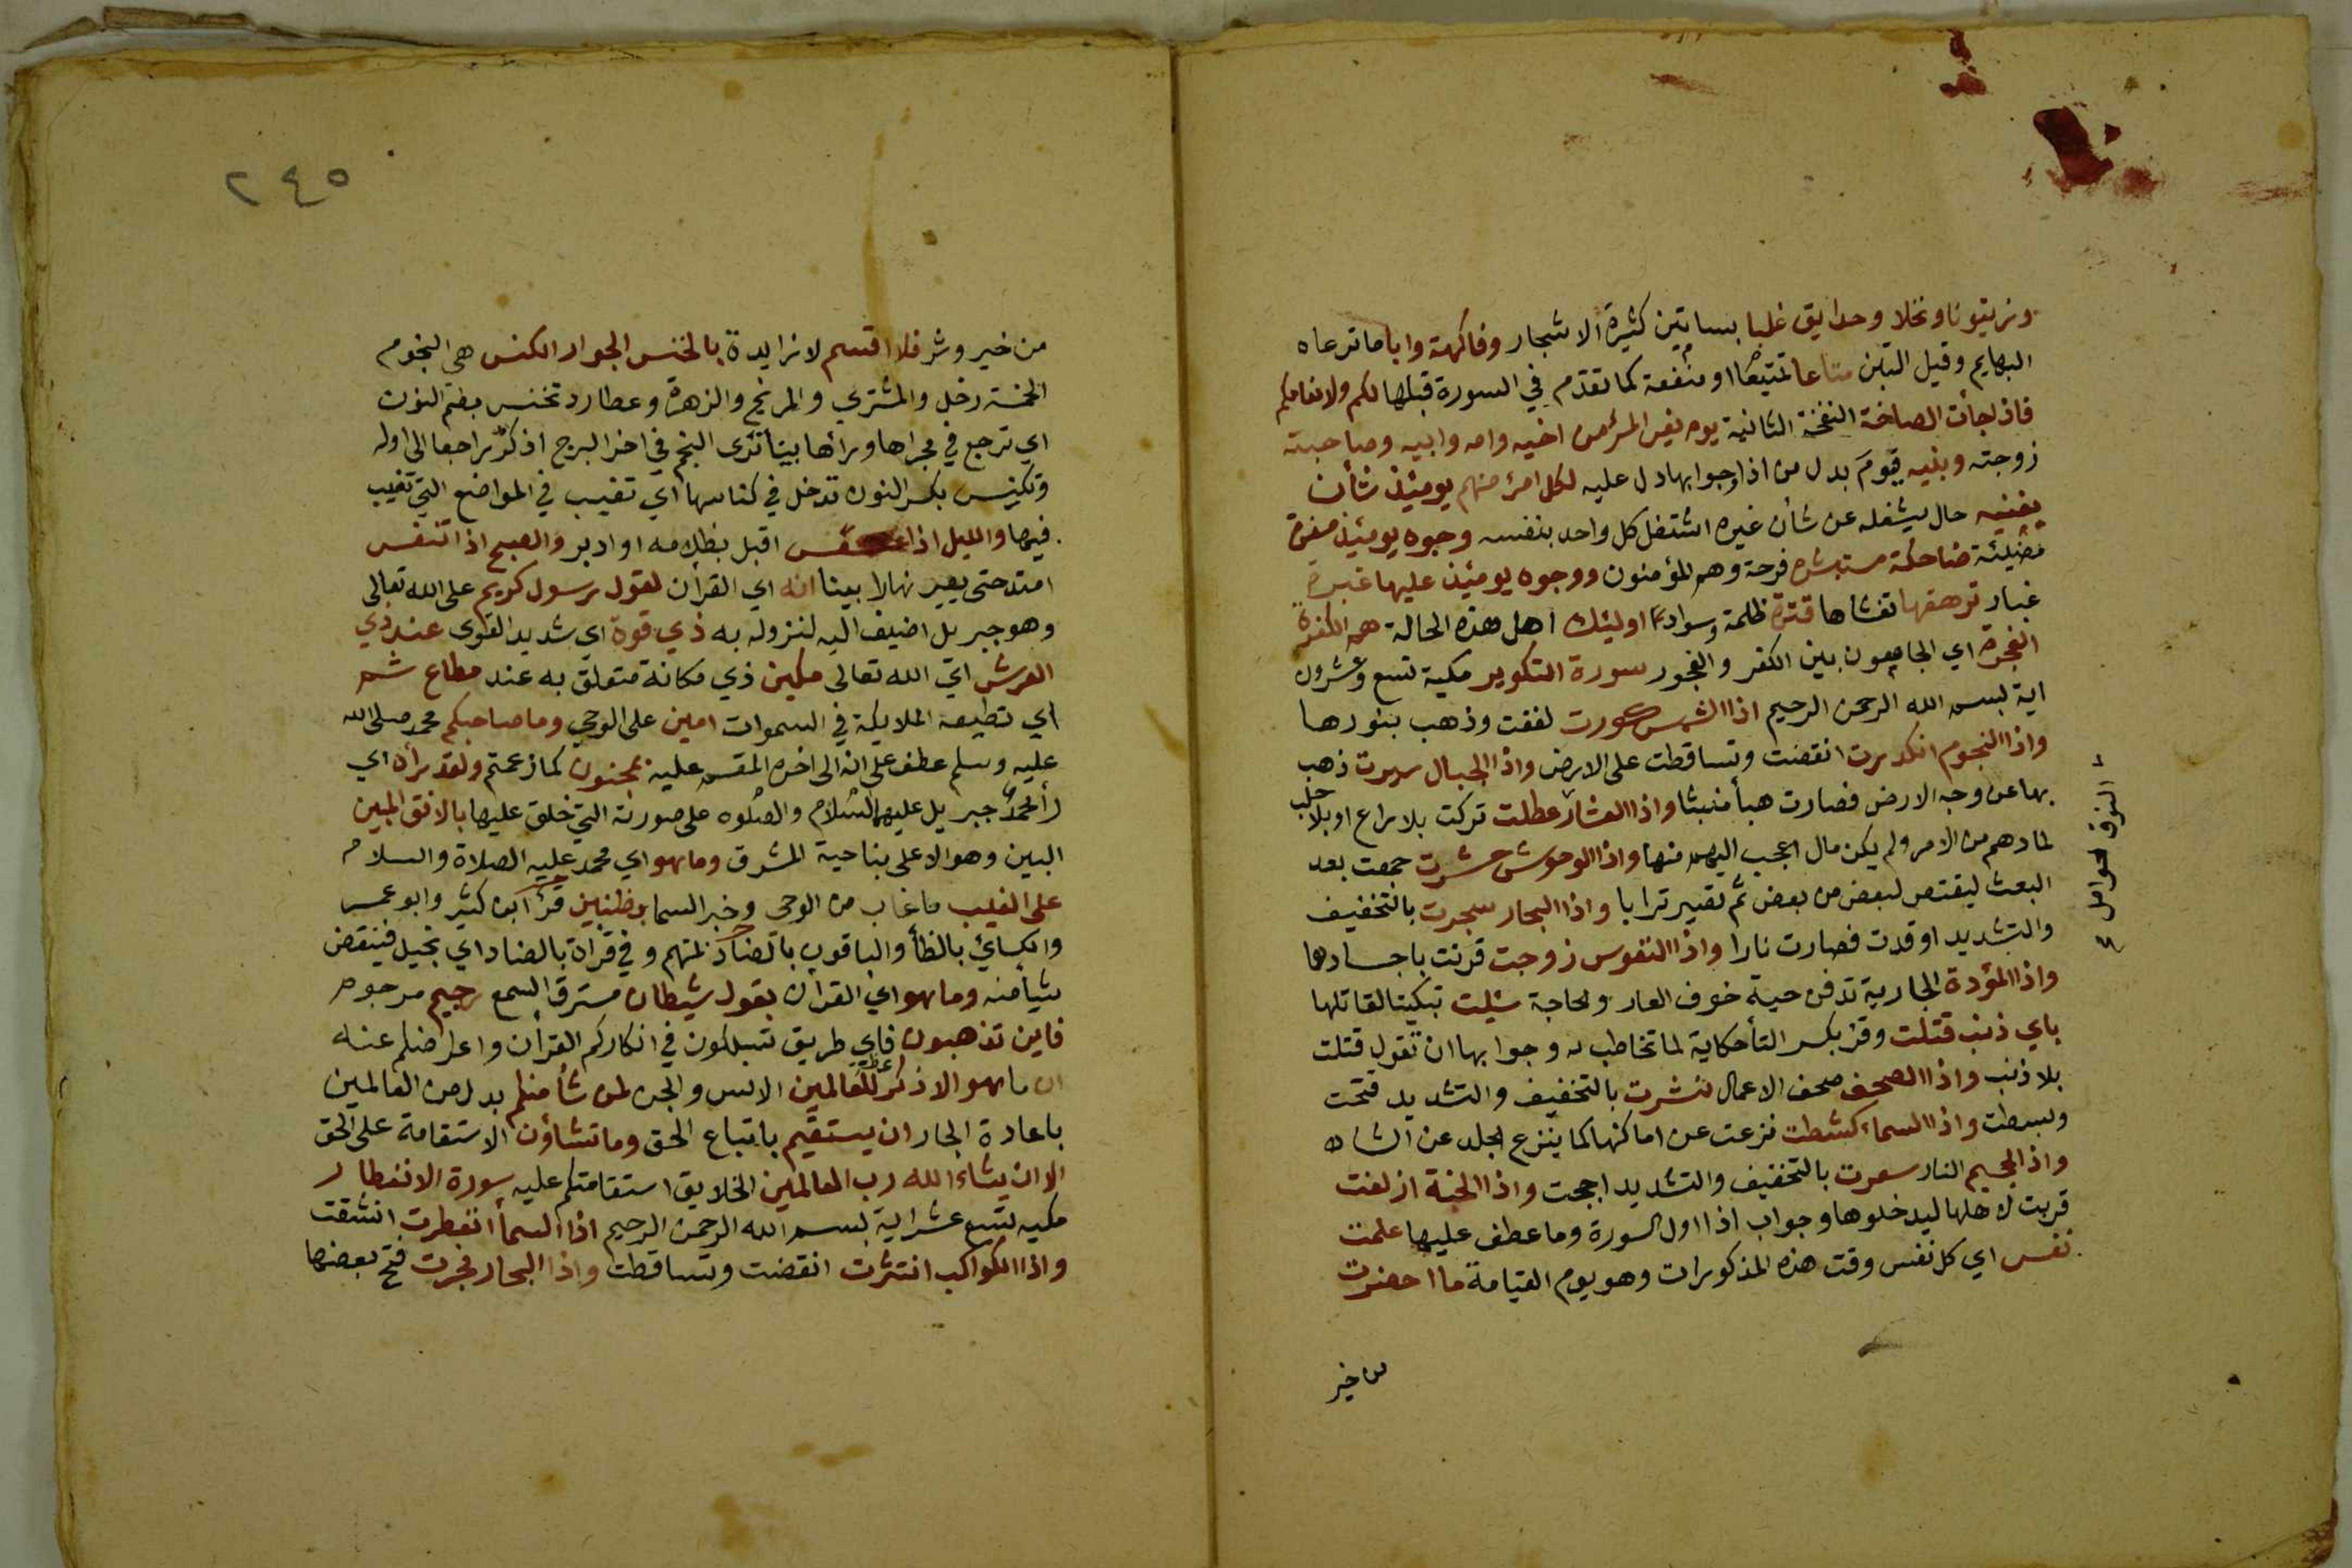 وزيتونا ونخلا وحدايق غلبا بساتين كثيرة الاشجار وفاكهة وابا ما ترعاه
البهايم وقيل التبن متاعا تمتيعا او منفعة كما تقدم في السورة قبلها لكم ولانعامكم
فاذا جأت الصاخة النفخة الثانية يوم يفر المرؤ من اخيه وامه وابيه وصاحبته
زوجته وبنيه يوم بدل من اذا وجوابها دل عليه لكل امرئ منهم يومئذ شأن
يغنيه حال يشغله عن شأن غيره اشتغل كل واحد بنفسه وجوه يومئذ مسفرة
مضيئة ضاحكة مستبشرة فرحة وهم المؤمنون ووجوه يومئذ عليها غبرة
غبار ترهقها تغشاها قترة ظلمة وسواد اوليئك اهل هذه الحالة هم الكفرة
الفجرة اي الجامعون بين الكفر والفجور سورة التكوير مكية تسع وعشرون
اية بسم الله الرحمن الرحيم اذا الشمس كورت لففت وذهب بنورها
واذا النجوم انكدرت انقضت وتساقطت على الارض واذا الجبال سيرت ذهب
بها عن وجه الارض فصارت هبأ منبثا واذا العشار عطلت تركت بلا راع او بلا حلب
لما دهم من الامر ولم يكن مال اعجب اليهم منها واذا الوحوش حشرت جمعت بعد
البعث ليقتص لبعض من بعض ثم تصير ترابا واذا البحار سجرت بالتخفيف
والتشديد اوقدت فصارت نارا واذا النفوس زوجت قرنت باجسادها
واذا المؤدة الجارية تدفن حية خوف العار والحاجة سئلت تبكيتا لقاتلها
باي ذنب قتلت وقرئ بكسر التأ حكاية لما تخاطب به وجوابها ان تقول قتلت
بلا ذنب واذا الصحف صحف الاعمال نشرت بالتخفيف والتشديد فتحت
وبسطت واذا السماء كشطت نزعت عن اماكنها كما ينزع الجلد عن الشاه
واذا الجحيم النار سعرت بالتخفيف والتشديد اججت واذا الجنة ازلفت
قربت لاهلها ليدخلوها وجواب اذا اول السورة وما عطف عليها علمت
نفس اي كل نفس وقت هذه المذكورات وهو يوم القيامة ما احضرت
من خير
النوق الحوامل
٢٤٥
من خير وشر فلا اقسم لا زايدة بالخنس الجوار الكنس هي النجوم
الخمسة زحل والمشتري والمريخ والزهرة وعطارد تخنس بضم النون
اي ترجع في مجراها ورائها بينا ترى النجم في اخر البرج اذ كر راجعا الى اوله
وتكنس بكسر النون تدخل في كناسها اي تغيب في المواضع التي تغيب
فيها والليل اذا عسعس اقبل بظلامه او ادبر والصبح اذا تنفس
امتد حتى يصير نهارا بينا انه اي القرأن لقول رسول كريم على الله تعالى
وهو جبريل اضيف اليه لنزوله به ذي قوة اي شديد القوى عند ذي
العرش اي الله تعالى مكين ذي مكانة متعلق به عند مطاع ثم
اي تطيعه الملايكة في السموات امين على الوحي وما صاحبكم محمد صلى الله
عليه وسلم عطف على انه الى اخر المقسم عليه بمجنون كما زعمتم ولقد رأه اي
رأ محمد جبريل عليهما السلام والصلوه على صورته التي خلق عليها بالافق المبين
البين وهو الاعلى بناحية المشرق وما هو اي محمد عليه الصلاة والسلام
على الغيب ما غاب من الوحي وخبر السما بظنين قرأ ابن كثير وابو عمر
والكسائي بالظأ والباقون بالضاد بمتهم وفي قرأة بالضاد اي بخيل فينقص
شيأ منه وما هو اي القرأن بقول شيطان مسترق السمع رجيم مرجوم
فاين تذهبون فاي طريق تسلكون في انكاركم القرأن واعراضكم عنه
ان ما هو الا ذكر عظة للعالمين الانس والجن لمن شأ منكم بدل من العالمين
باعادة الجار ان يستقيم باتباع الحق وما تشاؤن الاستقامة على الحق
الا ان يشاء الله رب العالمين الخلايق استقامتكم عليه سورة الانفطار
مكيه تسع عشر اية بسم الله الرحمن الرحيم اذا السمأ انفطرت انشقت
واذا الكواكب انتثرت انقضت وتساقطت واذا البحار فجرت فتح بعضها